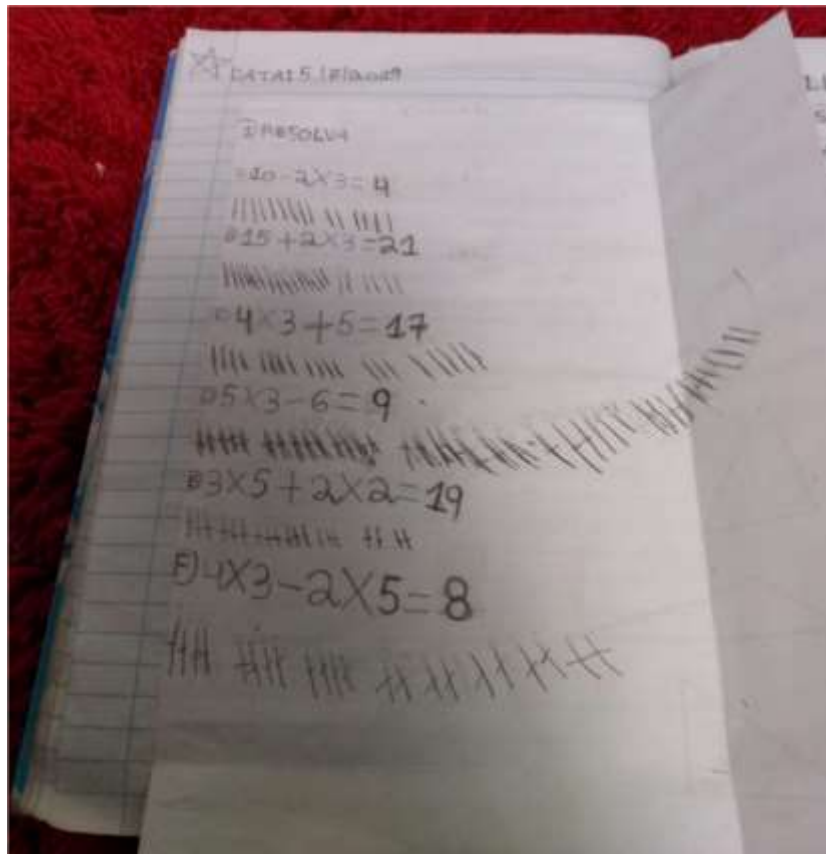 DATA15
RESOLVA
10-2X3=4
15+2X3=21
4X3+5=17
D5X3-6=9
3X5+2X2=19
F)4X3-2X5=8